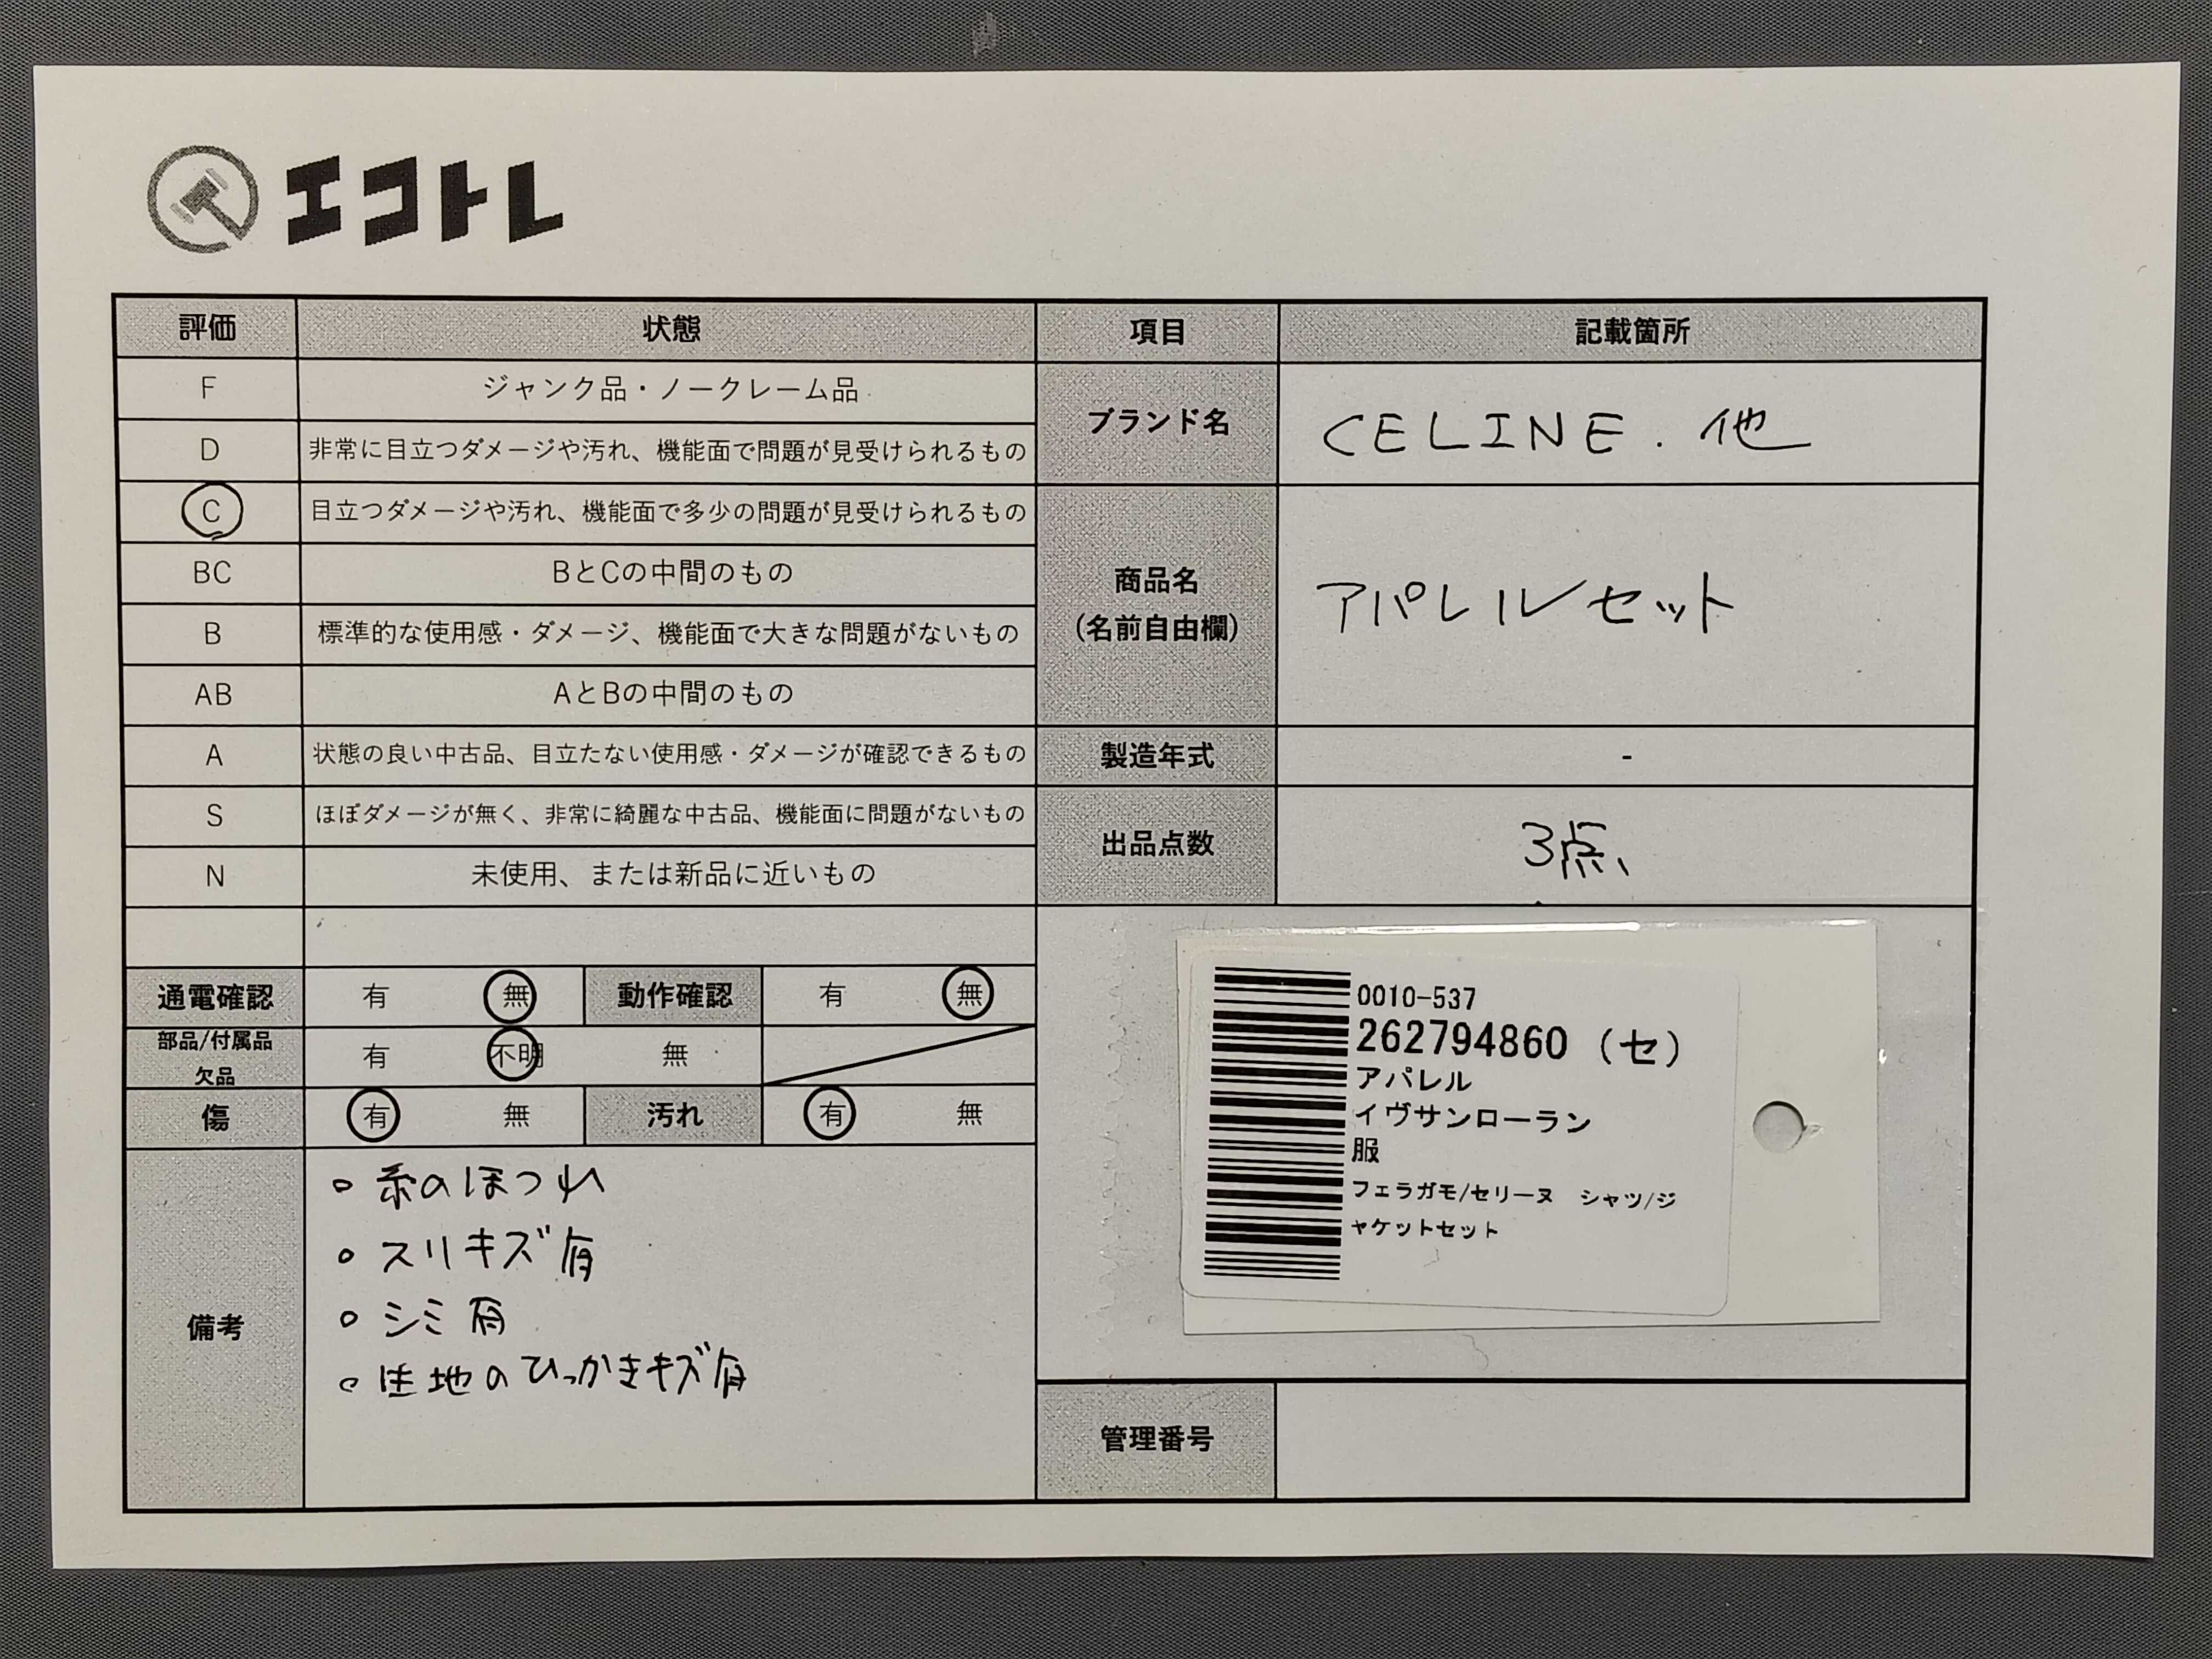 エコトレ
評価 状態 項目 記載箇所
F ジャンク品・ノークレーム品
D 非常に目立つダメージや汚れ、機能面で問題が見受けられるもの
C 目立つダメージや汚れ、機能面で多少の問題が見受けられるもの
BC BとCの中間のもの
B 標準的な使用感・ダメージ、機能面で大きな問題がないもの
AB AとBの中間のもの
A 状態の良い中古品、目立たない使用感・ダメージが確認できるもの
S ほぼダメージが無く、非常に綺麗な中古品、機能面に問題がないもの
N 未使用、または新品に近いもの
通電確認 有 無 動作確認 有 無
部品/付属品
欠品 有 不明 無
傷 有 無 汚れ 有 無
備考
。糸のほつれ
。スリキズ有
。シミ有
。生地のひっかきキズ有
ブランド名 CELINE.他
商品名
(名前自由欄) アパレルセット
製造年式 -
出品点数 3点、
0010-537
262794860 (セ)
アパレル
イヴサンローラン
服
フェラガモ/セリーヌ シャツ/ジ
ャケットセット
管理番号